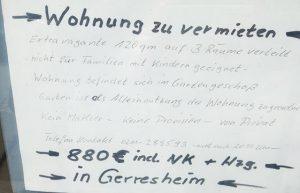 Wohnung zu vermieten
Extravagante 120qm auf 3 Räume verteilt
-nicht für Familien mit Kindern geeignet-
Wohnung befindet sich im Gartengeschoß
Garten ist als Alleinnutzung der Wohnung
Kein Makler - Keine Provision - von Privat
Telefon Kontakt
880€ incl. NK + Hzg.
in Gerresheim